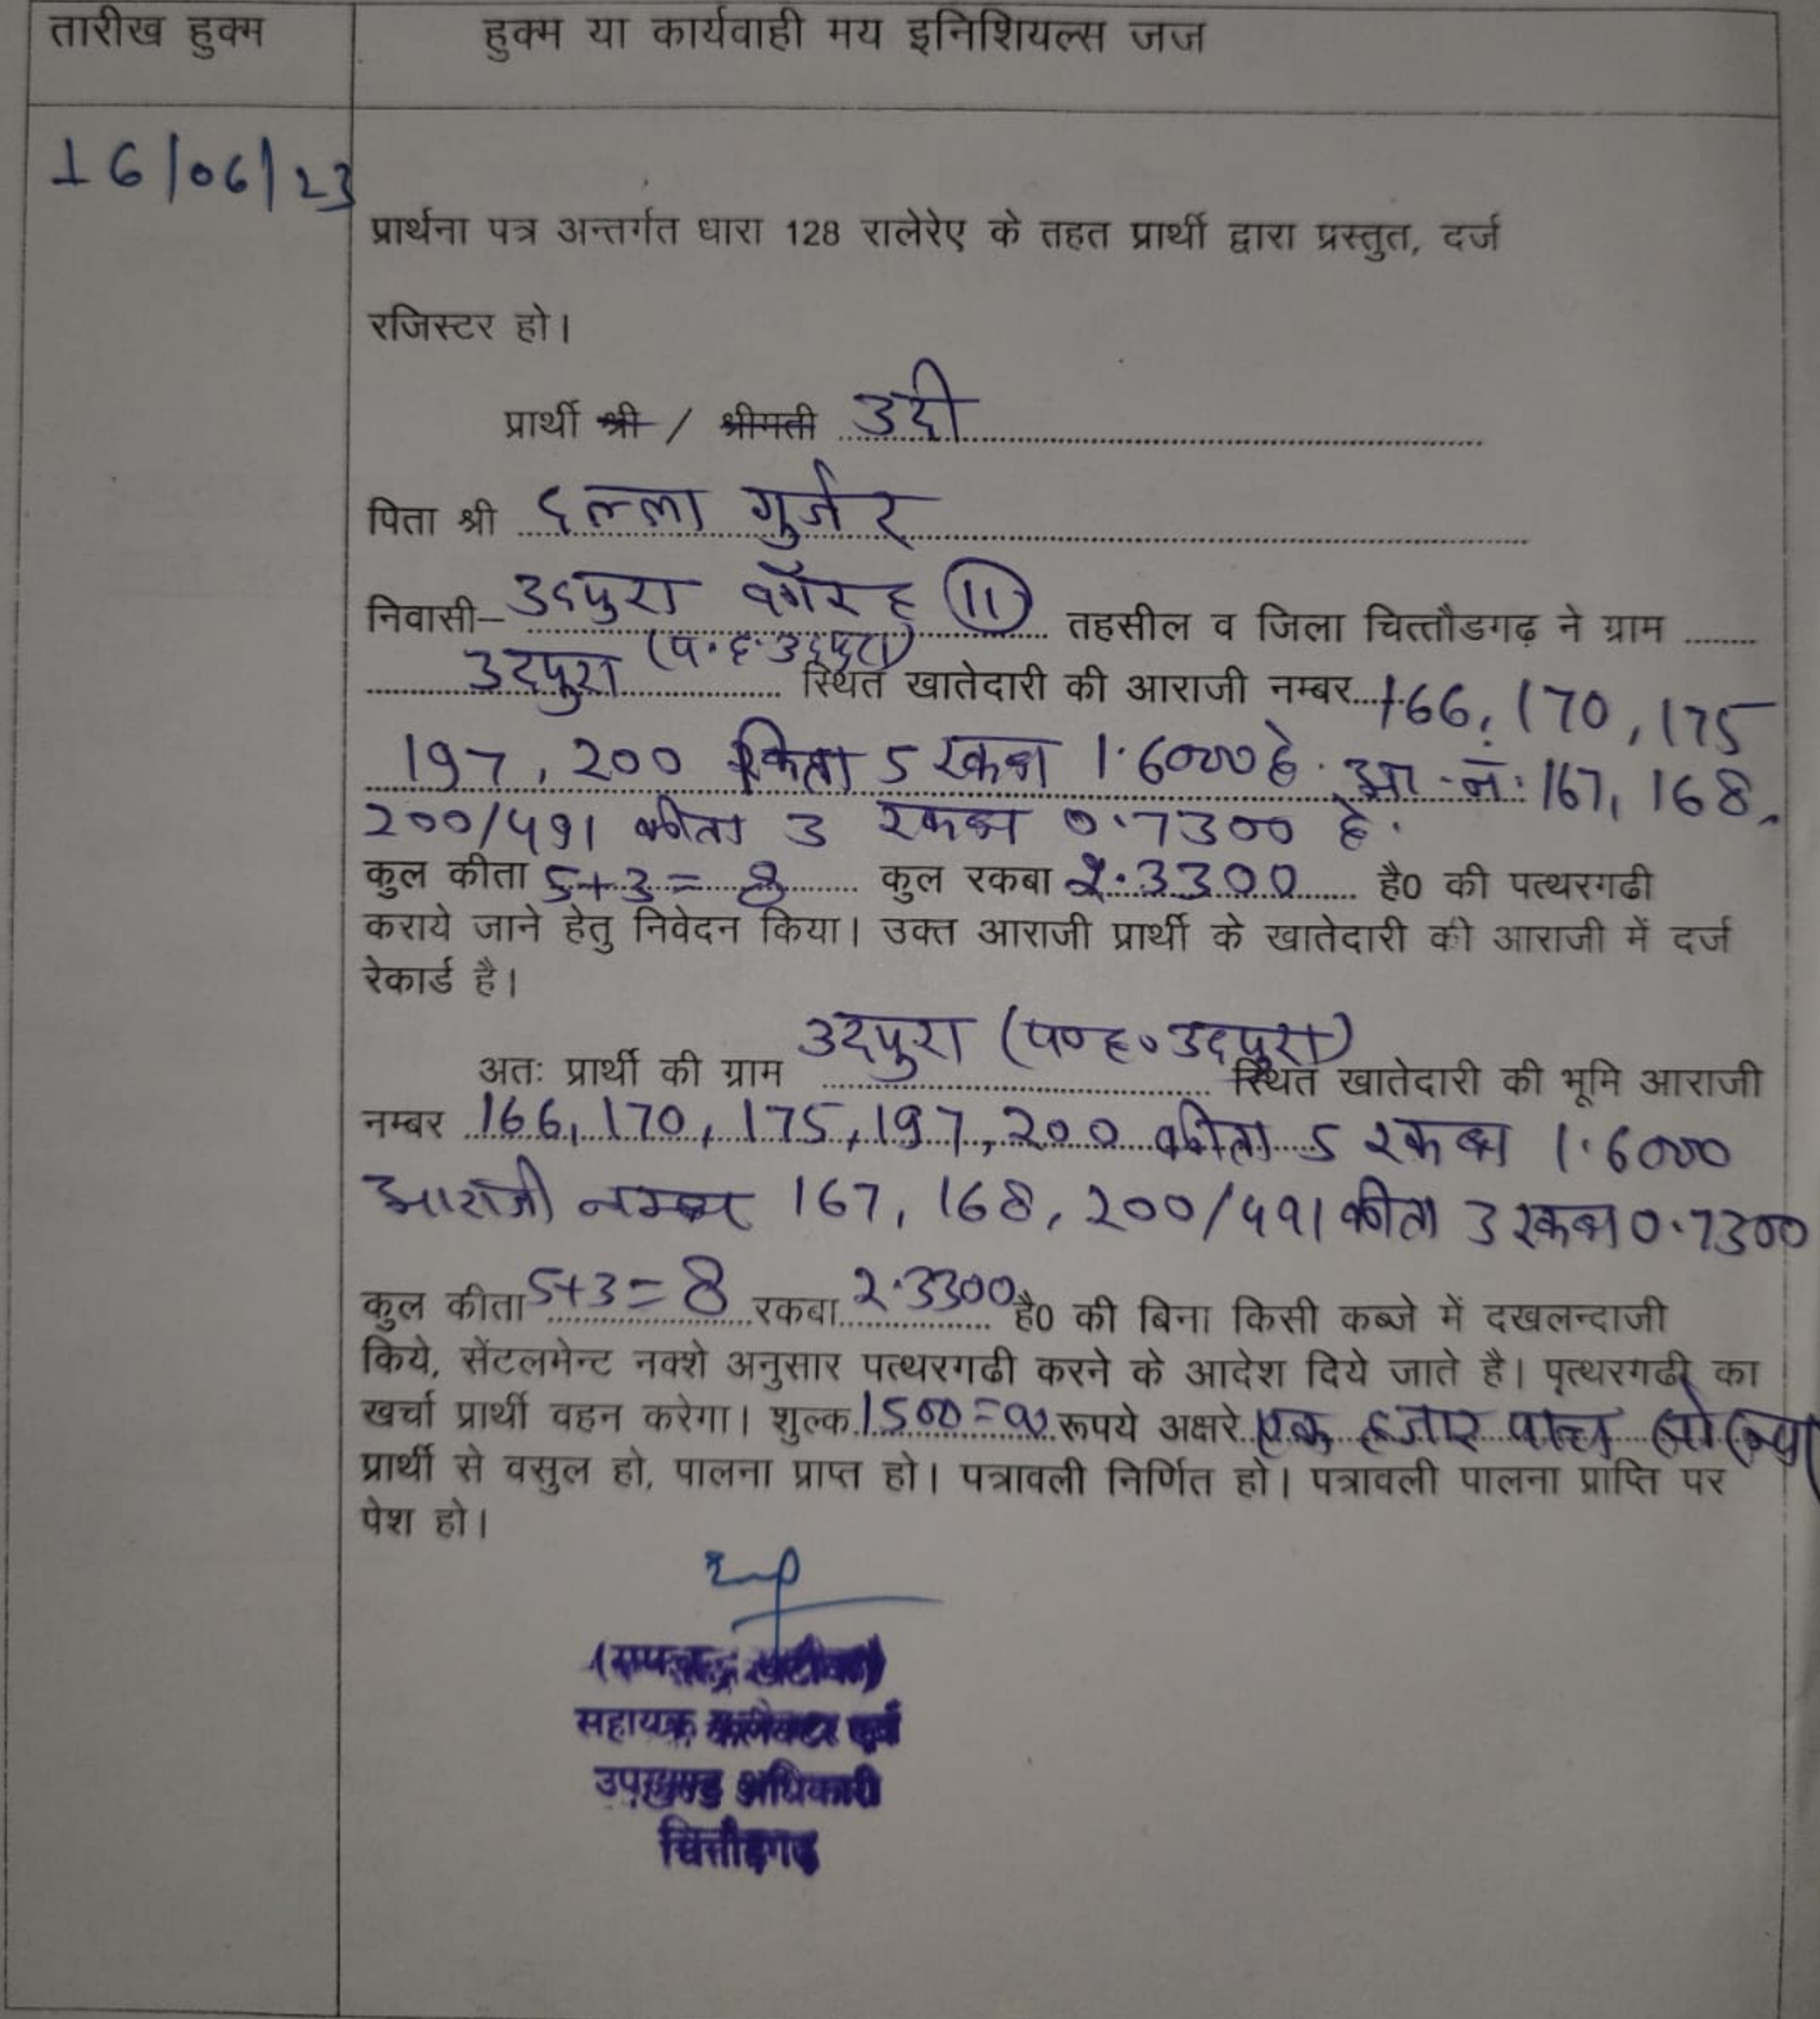 तारीख हुक्म
हुक्म या कार्यवाही मय इनिशियल्स जज
16/06/23
प्रार्थना पत्र अन्तर्गत धारा 128 रालेरेए के तहत प्रार्थी द्वारा प्रस्तुत, दर्ज
रजिस्टर हो।
प्रार्थी श्री / श्रीमती उदी
पिता श्री दल्ला गुर्जर
निवासी– उदपुरा वगैरह (11) तहसील व जिला चित्तौडगढ़ ने ग्राम
उदपुरा (प.ह.उदपुरा) स्थित खातेदारी की आराजी नम्बर 166, 170, 175
197, 200 किता 5 रकबा 1.6000 हे. आ.नं. 167, 168,
200/491 कीता 3 रकबा 0.7300 हे.
कुल कीता 5+3=8 कुल रकबा 2.3300 है0 की पत्थरगढी
कराये जाने हेतु निवेदन किया। उक्त आराजी प्रार्थी के खातेदारी की आराजी में दर्ज
रेकार्ड है।
अतः प्रार्थी की ग्राम उदपुरा (प०ह०उदपुरा) स्थित खातेदारी की भूमि आराजी
नम्बर 166, 170, 175, 197, 200 कीता 5 रकबा 1.6000
आराजी नम्बर 167, 168, 200/491 कीता 3 रकबा 0.7300
कुल कीता 5+3=8 रकबा 2.3300 है0 की बिना किसी कब्जे में दखलन्दाजी
किये, सेंटलमेन्ट नक्शे अनुसार पत्थरगढी करने के आदेश दिये जाते है। पत्थरगढी का
खर्चा प्रार्थी वहन करेगा। शुल्क 1500=00 रूपये अक्षरे एक हजार पांच सो
प्रार्थी से वसूल हो, पालना प्राप्त हो। पत्रावली निर्णित हो। पत्रावली पालना प्राप्ति पर
पेश हो।
सहायक कलेक्टर एवं
उपखण्ड अधिकारी
चित्तौड़गढ़